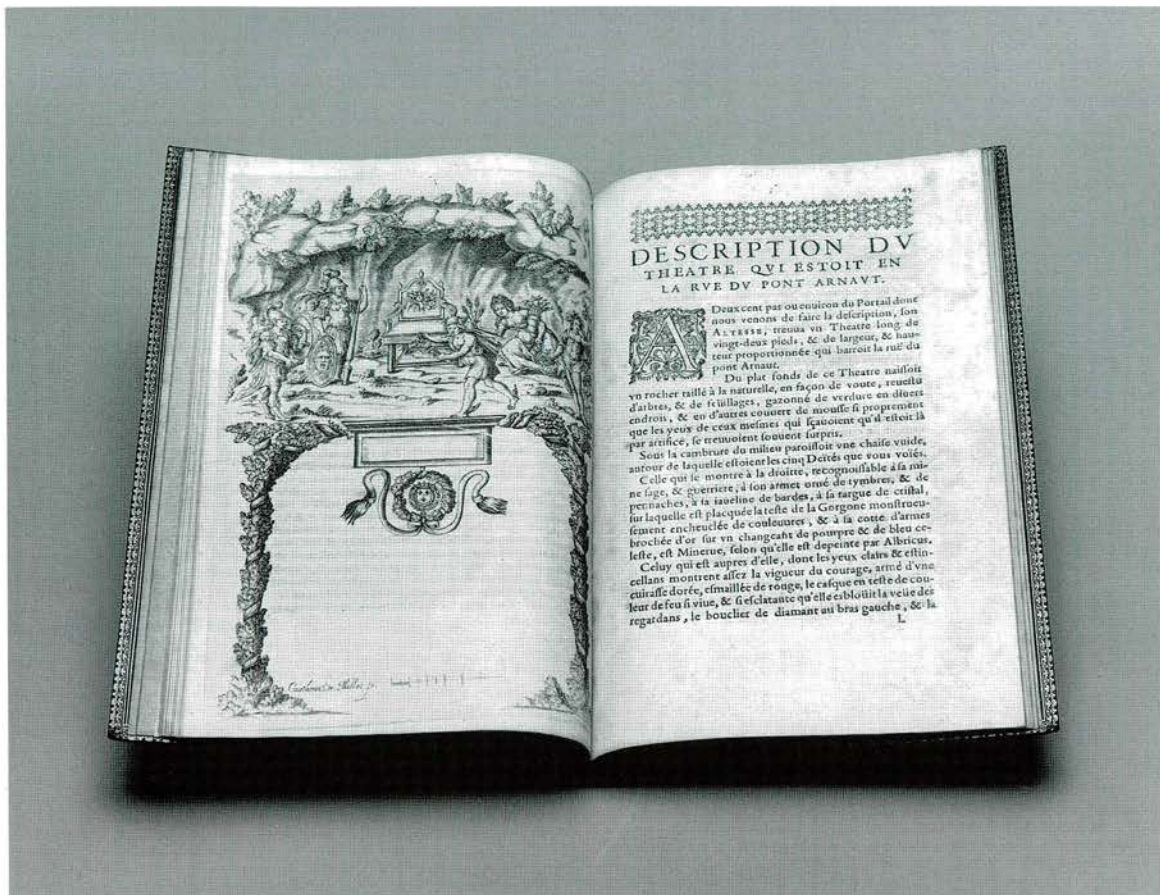 45
DESCRIPTION DV
THEATRE QVI ESTOIT EN
LA RVE DV PONT ARNAVT.
A Deux cent pas ou enuiron du Portail dont
nous venons de faire la description, son
ALTESSE, treuua vn Theatre long de
vingt-deux pieds, & de largeur, & hau-
teur proportionnée qui barroit la ruë du
pont Arnaut.
Du plat fonds de ce Theatre naissoit
vn rocher taillé à la naturelle, en façon de voute, reuestu
d'arbres, & de feüillages, gazonné de verdure en diuers
endrois, & en d'autres couuert de mousse si proprement
que les yeux de ceux mesmes qui sçauoient qu'il estoit là
par artifice, se treuuoient souuent surpris.
Sous la cambrure du milieu paroissoit vne chaise vuide,
autour de laquelle estoient les cinq Deïtés que vous voiés.
Celle qui se montre à la droitte, recognoissable à sa mi-
ne sage, & guerriere, à son armet orné de tymbres, & de
pennaches, à sa iaueline de bardes, à sa targue de cristal,
sur laquelle est placquée la teste de la Gorgone monstrueu-
sement encheuelée de couleuures, & à sa cotte d'armes
brochée d'or sur vn changeant de pourpre & de bleu ce-
leste, est Minerue, selon qu'elle est depeinte par Albricus.
Celuy qui est aupres d'elle, dont les yeux clairs & estin-
cellans montrent assez la vigueur du courage, armé d'vne
cuirasse dorée, esmaillée de rouge, le casque en teste de cou-
leur de feu si viue, & si esclatante qu'elle esbloüit la veüe des
regardans, le bouclier de diamant au bras gauche, & la
L